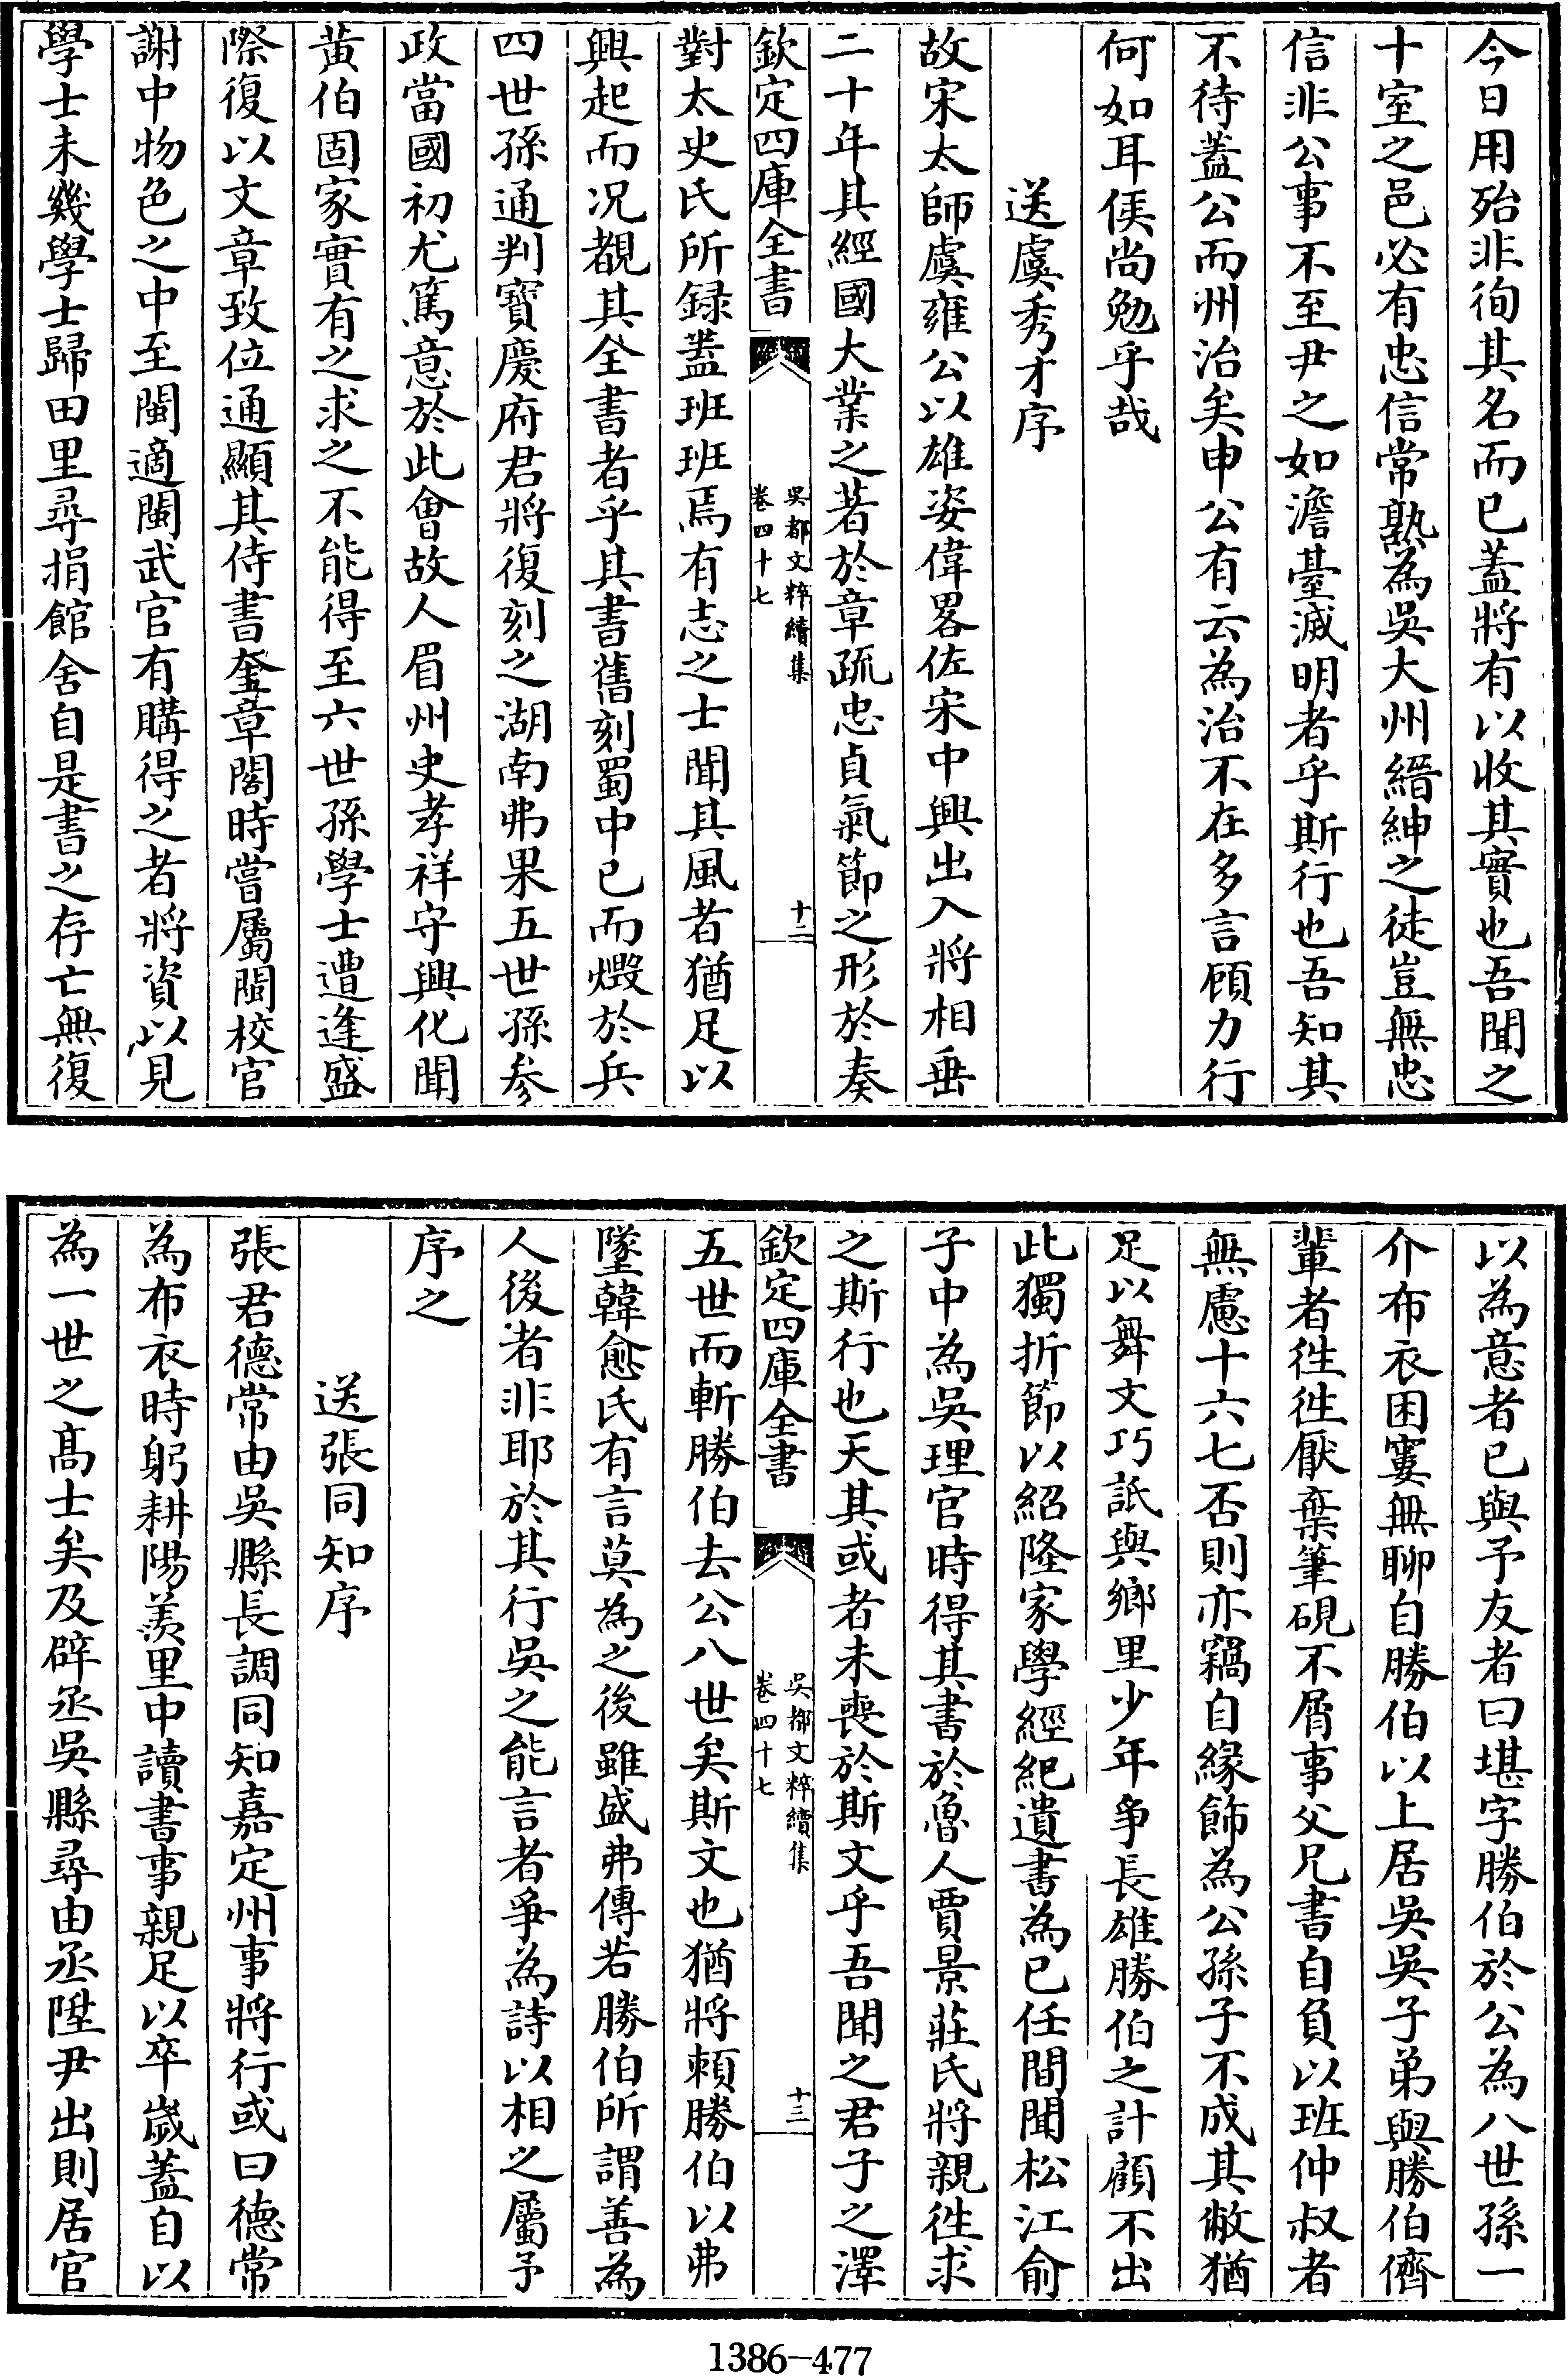 今日用殆非徇其名而已蓋將有以收其實也吾聞之
十室之邑必有忠信常熟為吳大州縉紳之徒豈無忠
信非公事不至尹之如澹臺滅明者乎斯行也吾知其
不待蓋公而州治矣申公有云為治不在多言顧力行
何如耳侯尚勉乎哉
送虞秀才序
故宋太師虞雍公以雄姿偉畧佐宋中興出入將相垂
二十年其經國大業之著於章疏忠貞氣節之形於奏
欽定四庫全書
吳都文粹續集
卷四十七
十二
對太史氏所録蓋班班焉有志之士聞其風者猶足以
興起而况覩其全書者乎其書舊刻蜀中已而燬於兵
四世孫通判寶慶府君將復刻之湖南弗果五世孫參
政當國初尤篤意於此會故人眉州史孝祥守興化聞
黃伯固家實有之求之不能得至六世孫學士遭逢盛
際復以文章致位通顯其侍書奎章閣時嘗屬閩校官
謝中物色之中至閩適閩武官有購得之者將資以見
學士未幾學士歸田里尋捐館舍自是書之存亡無復
以為意者已與予友者曰堪字勝伯於公為八世孫一
介布衣困窶無聊自勝伯以上居吳吳子弟與勝伯儕
輩者徃徃厭棄筆硯不屑事父兄書自負以班仲叔者
無慮十六七否則亦竊自緣飾為公孫子不成其敝猶
足以舞文巧詆與鄉里少年争長雄勝伯之計顧不出
此獨折節以紹隆家學經紀遺書為已任間聞松江俞
子中為吳理官時得其書於魯人賈景莊氏將親徃求
之斯行也天其或者未喪於斯文乎吾聞之君子之澤
欽定四庫全書
吳都文粹續集
卷四十七
十三
五世而斬勝伯去公八世矣斯文也猶將頼勝伯以弗
墜韓愈氏有言莫為之後雖盛弗傳若勝伯所謂善為
人後者非耶於其行吳之能言者爭為詩以相之屬予
序之
送張同知序
張君德常由吳縣長調同知嘉定州事將行或曰德常
為布衣時躬耕陽羨里中讀書事親足以卒嵗蓋自以
為一世之髙士矣及辟丞吳縣尋由丞陞尹出則居官
1386-477